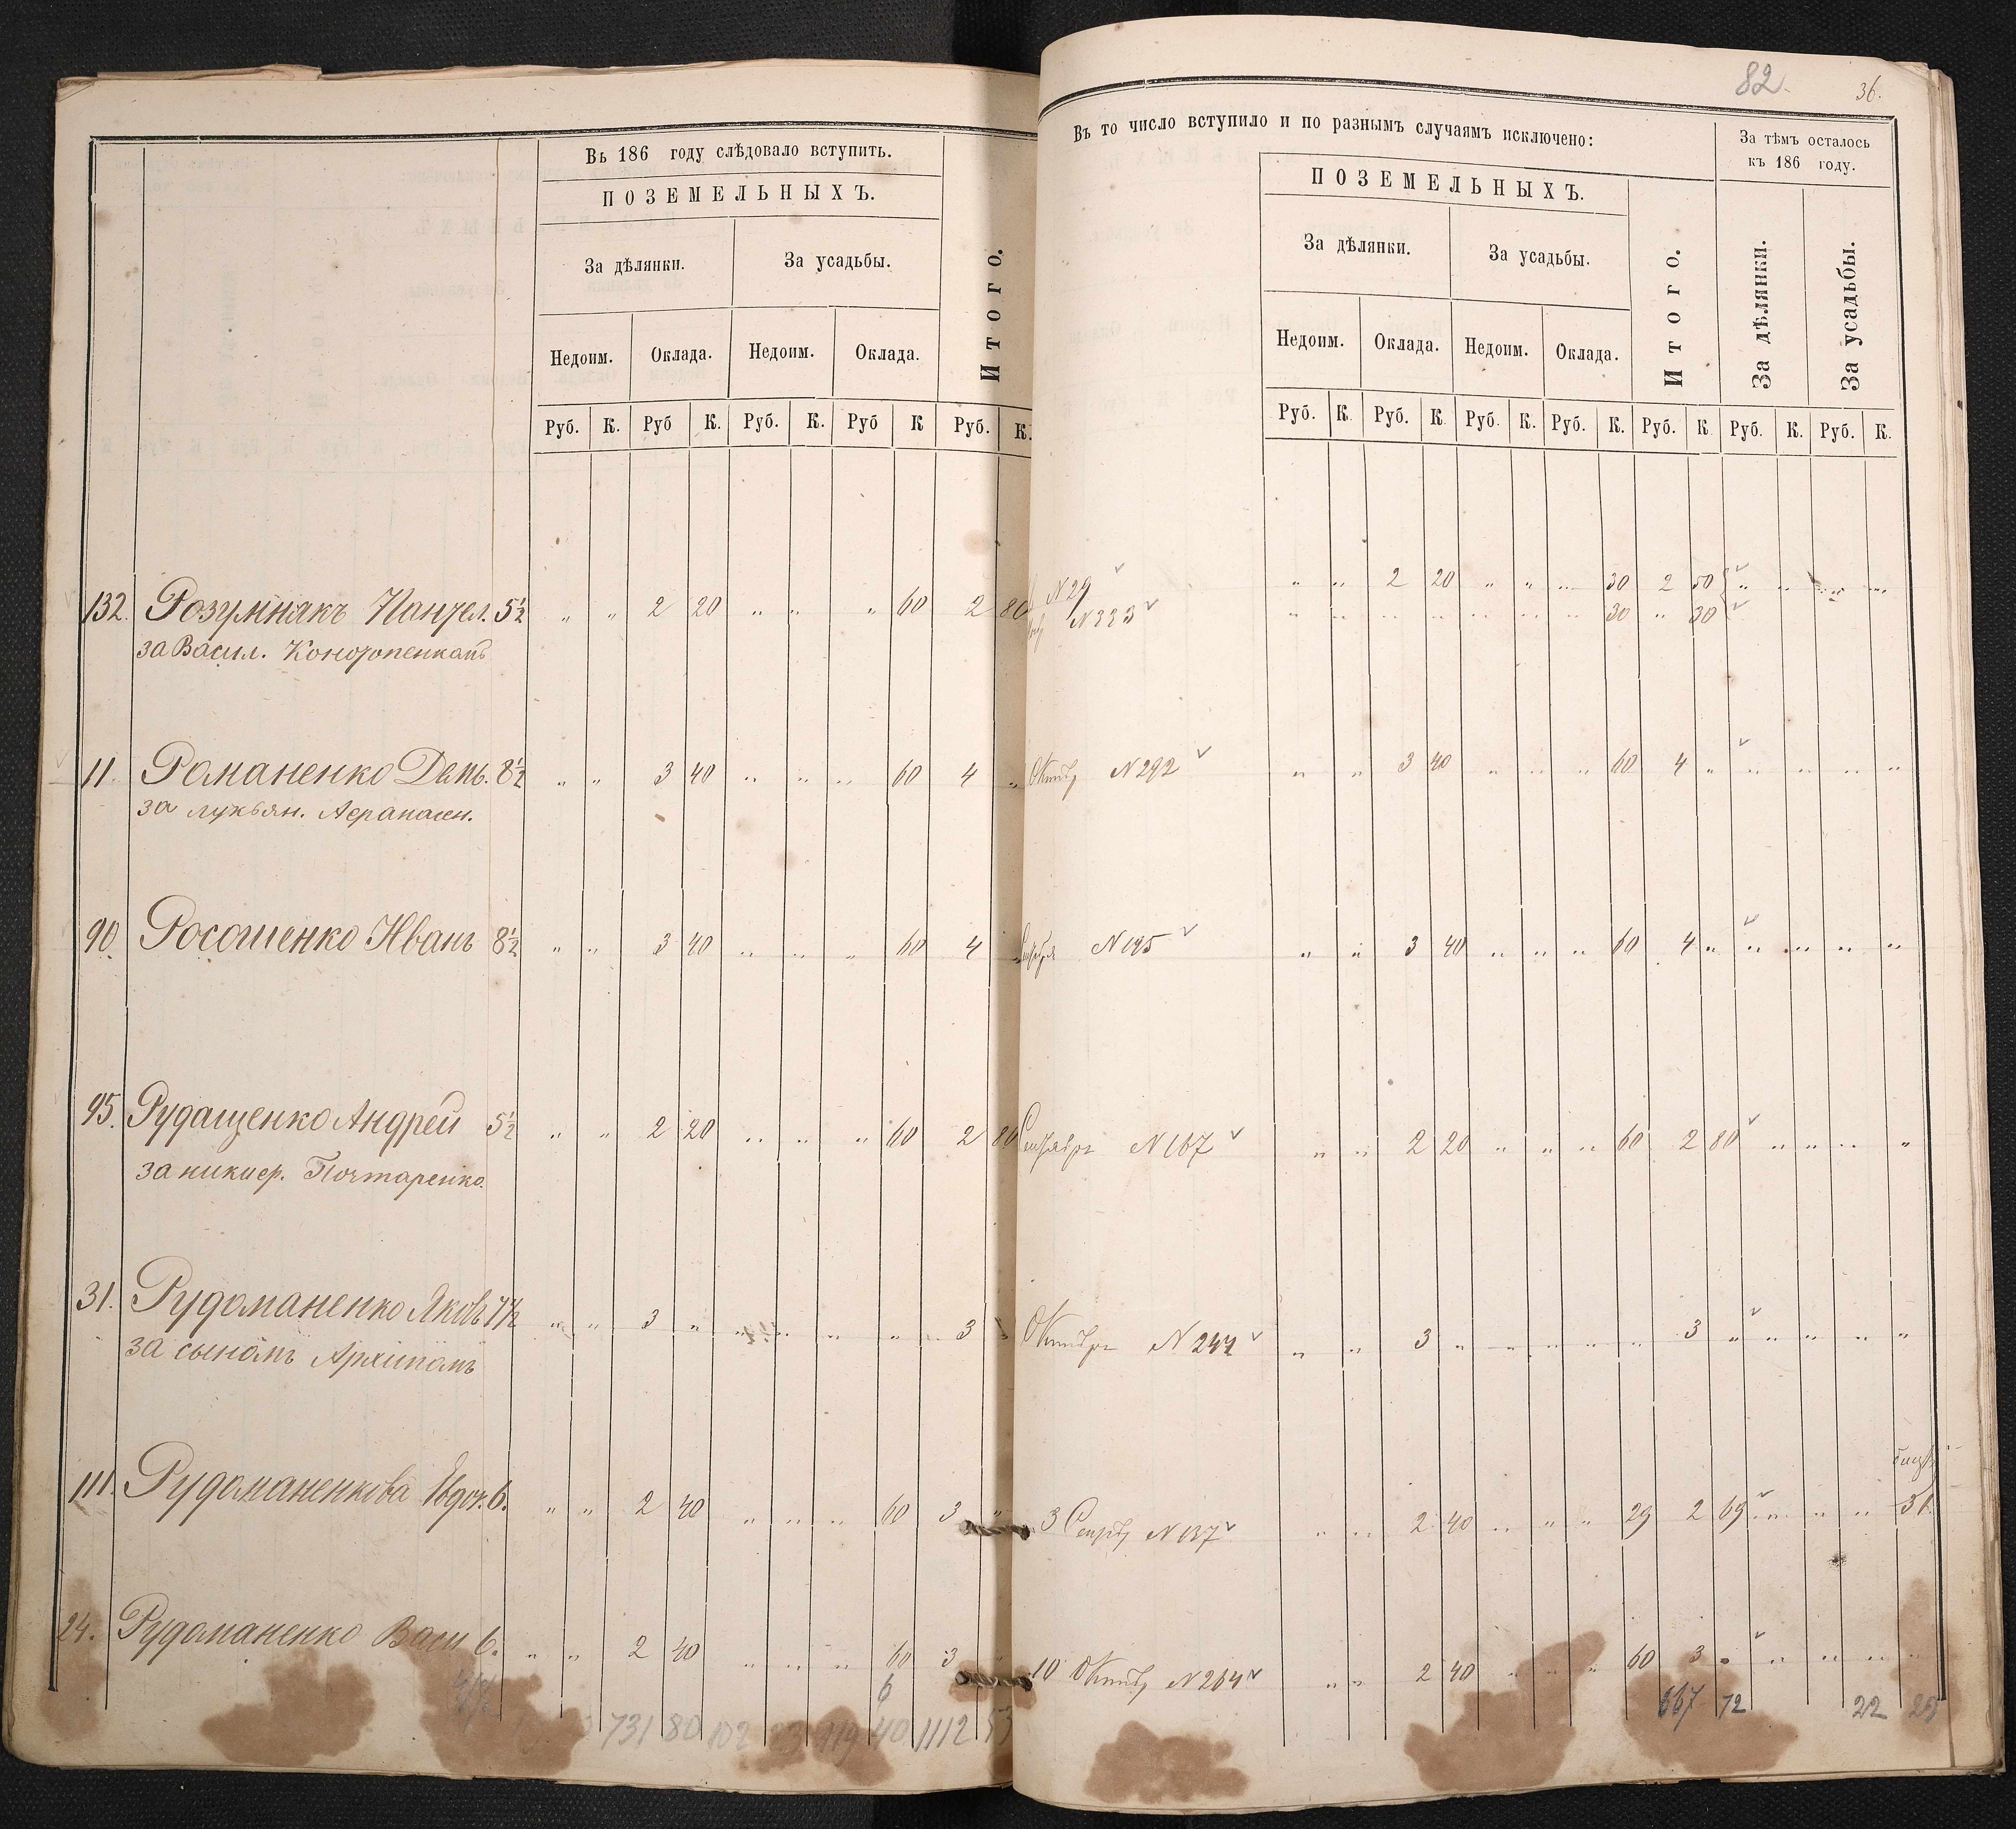 Въ 186 году слѣдовало вступить.
ПОЗЕМЕЛЬНЫХЪ.
За дѣлянки. За усадьбы. Итого.
Недоим. Оклада. Недоим. Оклада.
Руб. К. Руб К. Руб. К. Руб К Руб. К.
132. Розумнякъ Панчел. 5½ " " 2 20 " " " 60 2 80
за Васил. Конотопенкамъ
11. Романенко Демь. 8½ " " 3 40 " " " 60 4 "
за лукьян. Афанасен.
90. Росошенко Иванъ 8½ " " 3 40 " " " 60 4 "
95. Рудащенко Андрей 5½ " " 2 20 " " " 60 2 80
за никиф. Почтаренко.
31. Рудоманенко Яковъ 7½ " " 3 " " " " " 3 "
за сыномъ Архипомъ
111. Рудоманенкова Евдок. 6. " " 2 40 " " " 60 3 "
24. Рудоманенко Васи 6. " " 2 40 " " " 60 3 "
6
731 80 102 23 119 40 1112 53
82. 36.
Въ то число вступило и по разнымъ случаямъ исключено: За тѣмъ осталось
къ 186 году.
ПОЗЕМЕЛЬНЫХЪ.
За дѣлянки. За усадьбы. Итого. За дѣлянки. За усадьбы.
Недоим. Оклада. Недоим. Оклада.
Руб. К. Руб. К. Руб. К. Руб. К. Руб. К. Руб. К. Руб. К.
N 29 " " 2 20 " " " 30 2 50 " " " "
N 333 " " " " " " " 30 " 30
Октяб N 292 " " 3 40 " " " 60 4 " " " " "
N 195 " " 3 40 " " " 60 4 " " " " "
Сентябрь N 167 " " 2 20 " " " 60 2 80 " " " "
Октября N 247 " " 3 " " " " " 3 " " " " "
3 Сентяб N 137 " " 2 40 " " " 29 2 69 " " " 31
10 Октяб N 264 " " 2 40 " " " 60 3 " " " " "
667 72 22 25